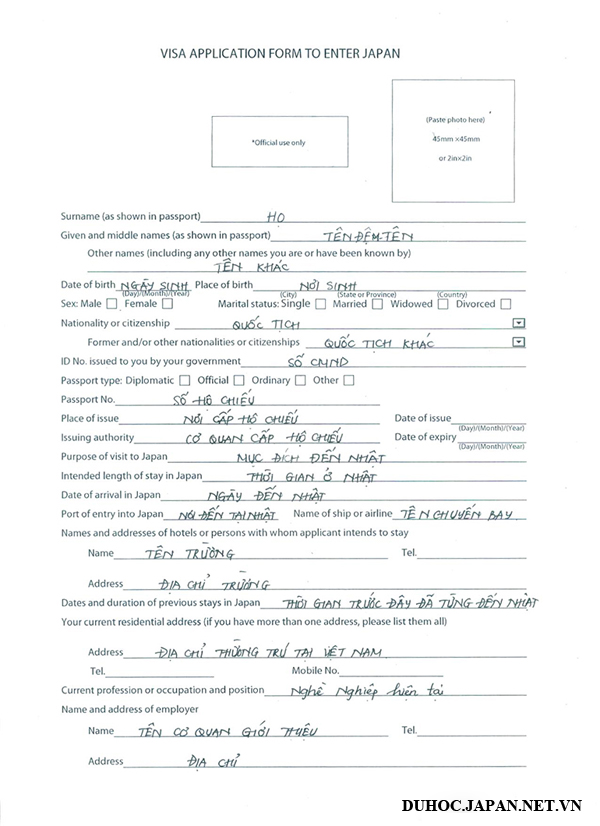 VISA APPLICATION FORM TO ENTER JAPAN
*Official use only
(Paste photo here)
45mm ×45mm
or 2in×2in
Surname (as shown in passport) HỌ
Given and middle names (as shown in passport) TÊN ĐỆM-TÊN
Other names (including any other names you are or have been known by)
TÊN KHÁC
Date of birth NGÀY SINH Place of birth NƠI SINH
(Day)/(Month)/(Year) (City) (State or Province) (Country)
Sex: Male Female Marital status: Single Married Widowed Divorced
Nationality or citizenship QUỐC TỊCH
Former and/or other nationalities or citizenships QUỐC TỊCH KHÁC
ID No. issued to you by your government SỐ CMND
Passport type: Diplomatic Official Ordinary Other
Passport No. SỐ HỘ CHIẾU
Place of issue NƠI CẤP HỘ CHIẾU Date of issue
(Day)/(Month)/(Year)
Issuing authority CƠ QUAN CẤP HỘ CHIẾU Date of expiry
(Day)/(Month)/(Year)
Purpose of visit to Japan MỤC ĐÍCH ĐẾN NHẬT
Intended length of stay in Japan THỜI GIAN Ở NHẬT
Date of arrival in Japan NGÀY ĐẾN NHẬT
Port of entry into Japan NƠI ĐẾN TẠI NHẬT Name of ship or airline TÊN CHUYẾN BAY
Names and addresses of hotels or persons with whom applicant intends to stay
Name TÊN TRƯỜNG Tel.
Address ĐỊA CHỈ TRƯỜNG
Dates and duration of previous stays in Japan THỜI GIAN TRƯỚC ĐÂY ĐÃ TỪNG ĐẾN NHẬT
Your current residential address (if you have more than one address, please list them all)
Address ĐỊA CHỈ THƯỜNG TRÚ TẠI VIỆT NAM
Tel. Mobile No.
Current profession or occupation and position Nghề Nghiệp hiện tại
Name and address of employer
Name TÊN CƠ QUAN GIỚI THIỆU Tel.
Address ĐỊA CHỈ
DUHOC.JAPAN.NET.VN